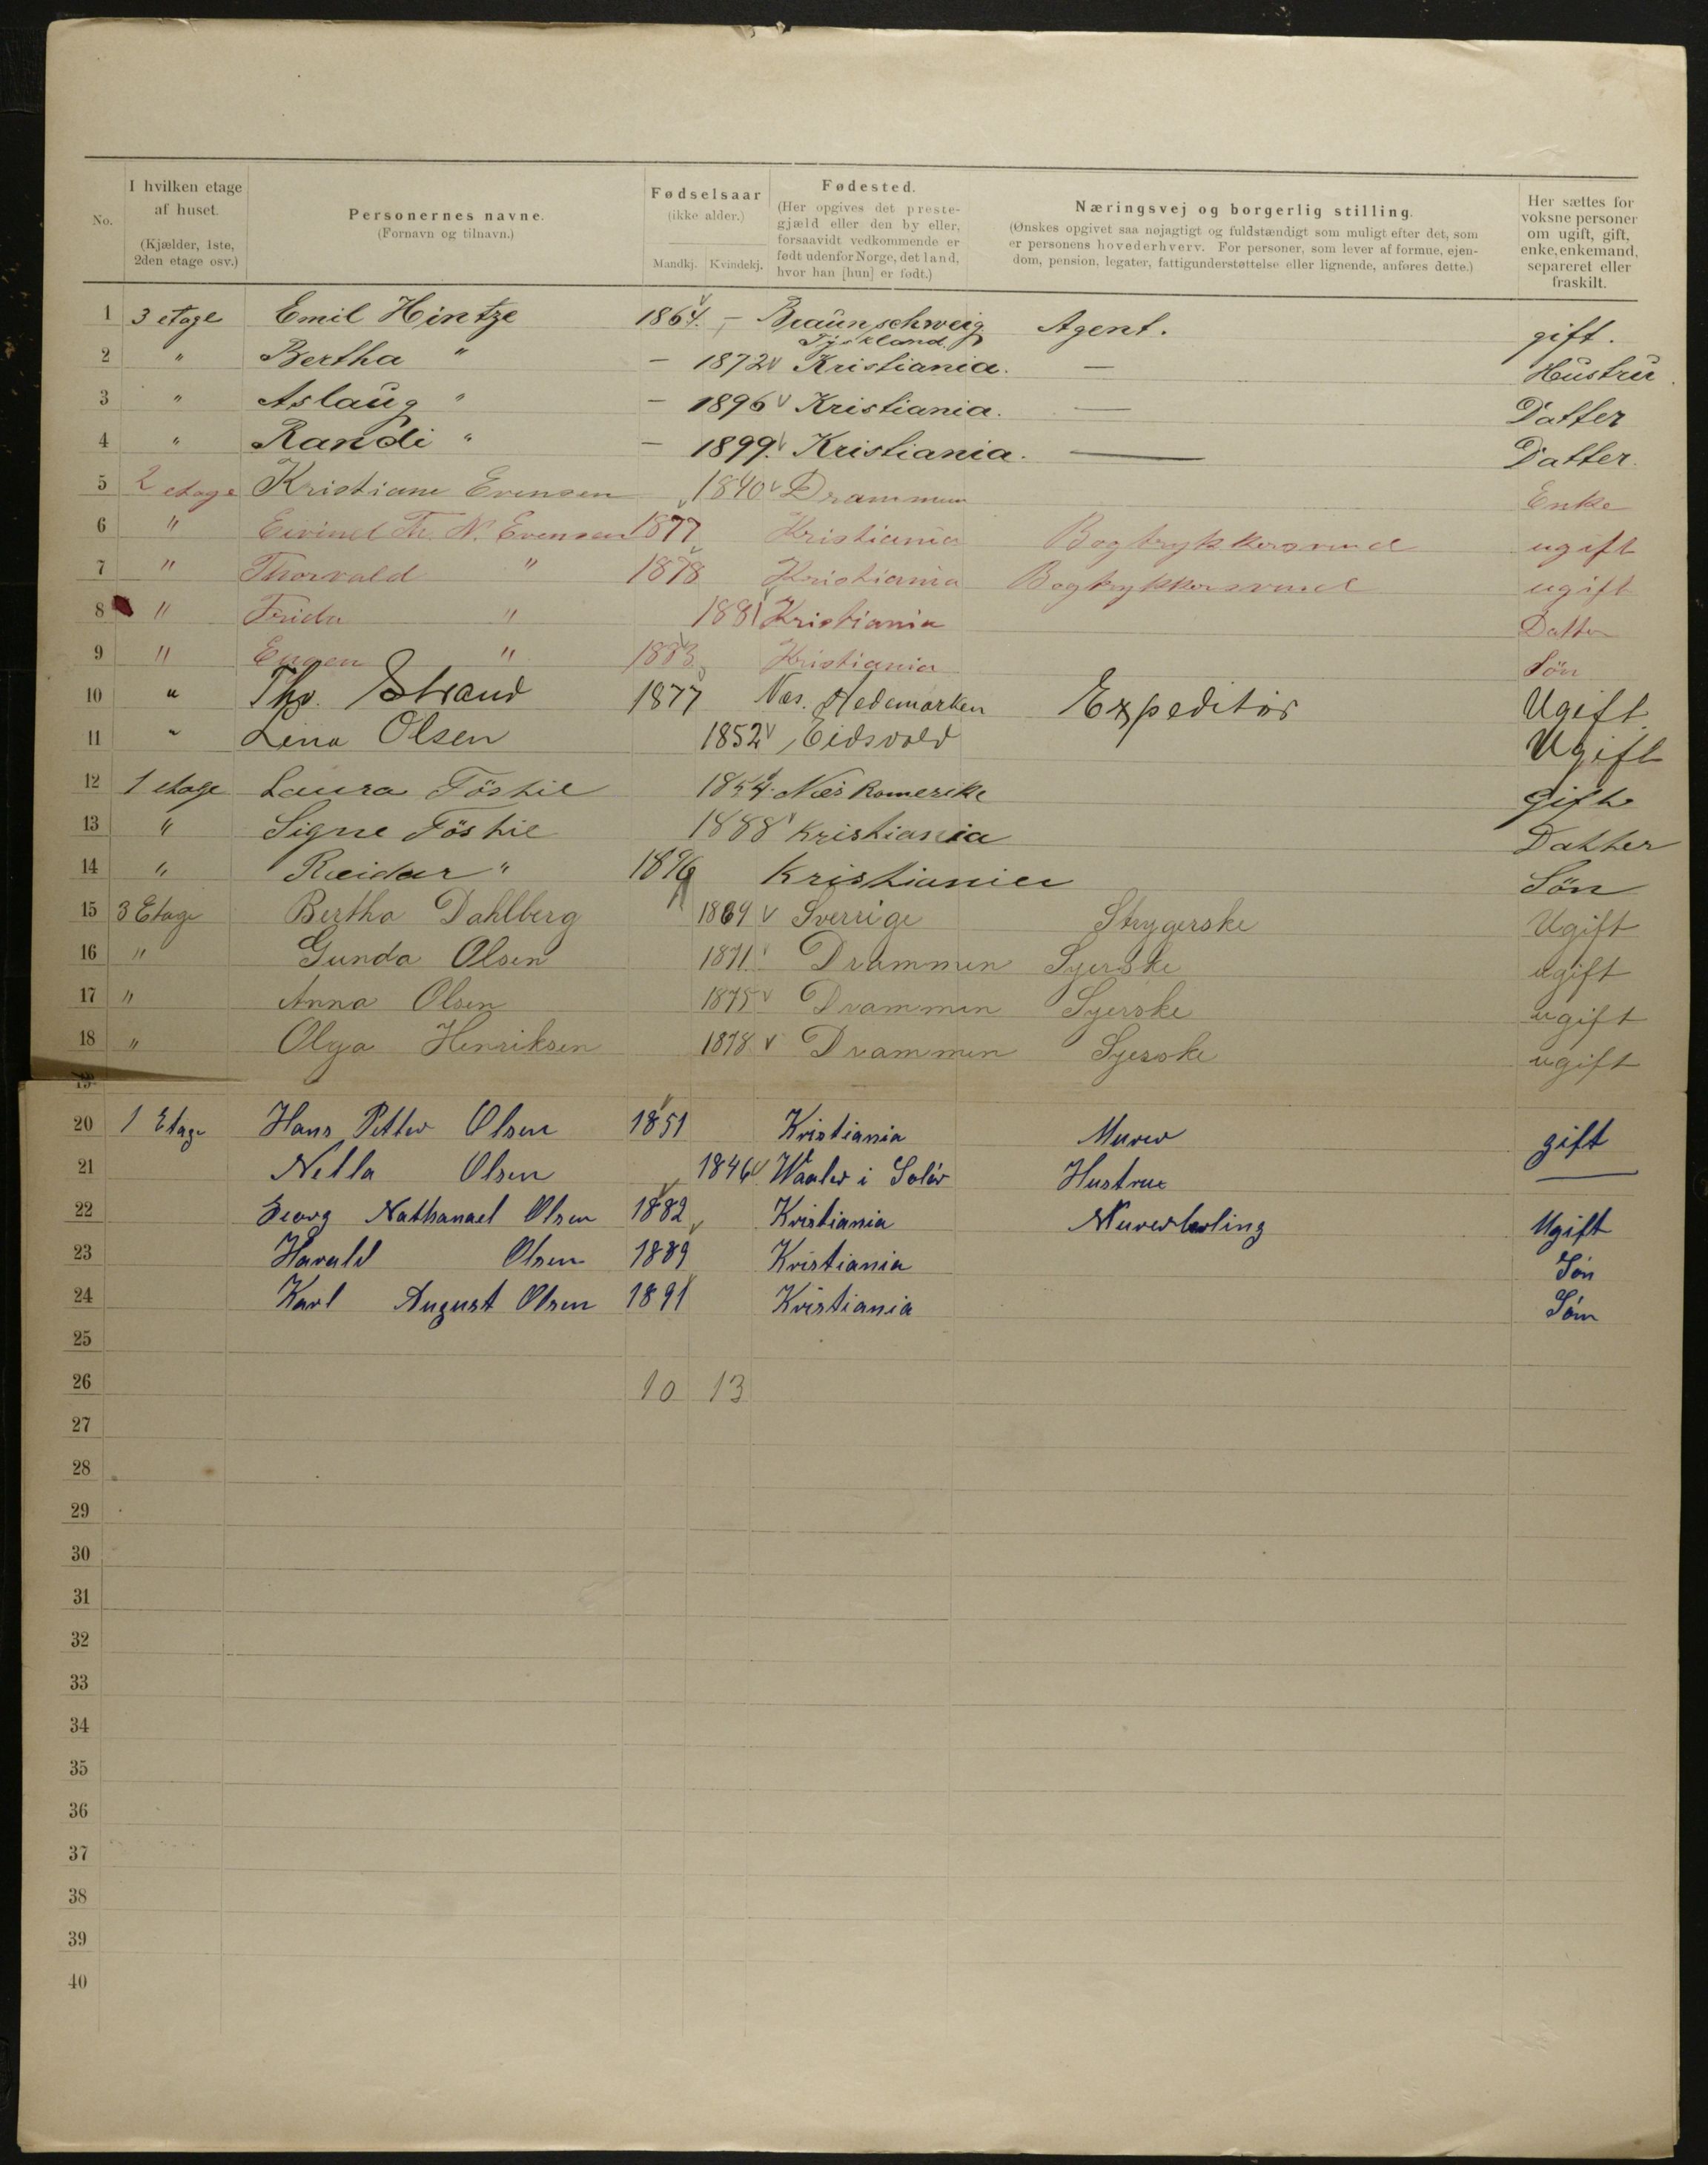 No.
I hvilken etage af huset. (Kjælder, 1ste, 2den etage osv.)
Personernes navne. (Fornavn og tilnavn.)
Fødselsaar (ikke alder.) Mandkj. Kvindekj.
Fødested. (Her opgives det prestegjæld eller den by eller, forsaavidt vedkommende er født udenfor Norge, det land, hvor han [hun] er født.)
Næringsvej og borgerlig stilling. (Ønskes opgivet saa nøjagtigt og fuldstændigt som muligt efter det, som er personens hovederhverv. For personer, som lever af formue, ejendom, pension, legater, fattigunderstøttelse eller lignende, anføres dette.)
Her sættes for voksne personer om ugift, gift, enke, enkemand, separeret eller fraskilt.
1 3 etage Emil Hintze 1864. — Braunschweig Tyskland. Agent. gift.
2 " Bertha " — 1872 Kristiania. — Hustru.
3 " Aslaug " — 1896 Kristiania. — Datter
4 " Randi " — 1899. Kristiania. — Datter.
5 2 etage Kristiane Evensen 1840 Drammen Enke
6 " Eivind Th. N. Evensen 1877 Kristiania Bogtrykkersvend ugift
7 " Thorvald " 1878 Kristiania Bogtrykkersvend ugift
8 " Frida " 1881 Kristiania Datter
9 " Eugen " 1883 Kristiania Søn
10 " Tho. Strand 1877 Næs. Hedemarken Expeditør Ugift
11 " Lina Olsen 1852 Eidsvold Ugift
12 1 etage Laura Töstie 1854. Næs Romerike gift
13 " Signe Töstie 1888 Kristiania Datter
14 " Reidar " 1896 Kristiania Sön
15 3 Etage Bertha Dahlberg 1869 Sverrige Strygerske Ugift
16 " Gunda Olsen 1871 Drammen Syerske ugift
17 " Anna Olsen 1875 Drammen Syerske ugift
18 " Olga Henriksen 1878 Drammen Syerske ugift
19
20 1 Etage Hans Petter Olsen 1851 Kristiania Murer gift
21 Nella Olsen 1846 Waaler i Solør Hustrue —
22 Georg Nathanael Olsen 1882 Kristiania Murerlærling Ugift
23 Harald Olsen 1889 Kristiania Søn
24 Karl August Olsen 1891 Kristiania Søn
25
26 10 13
27
28
29
30
31
32
33
34
35
36
37
38
39
40